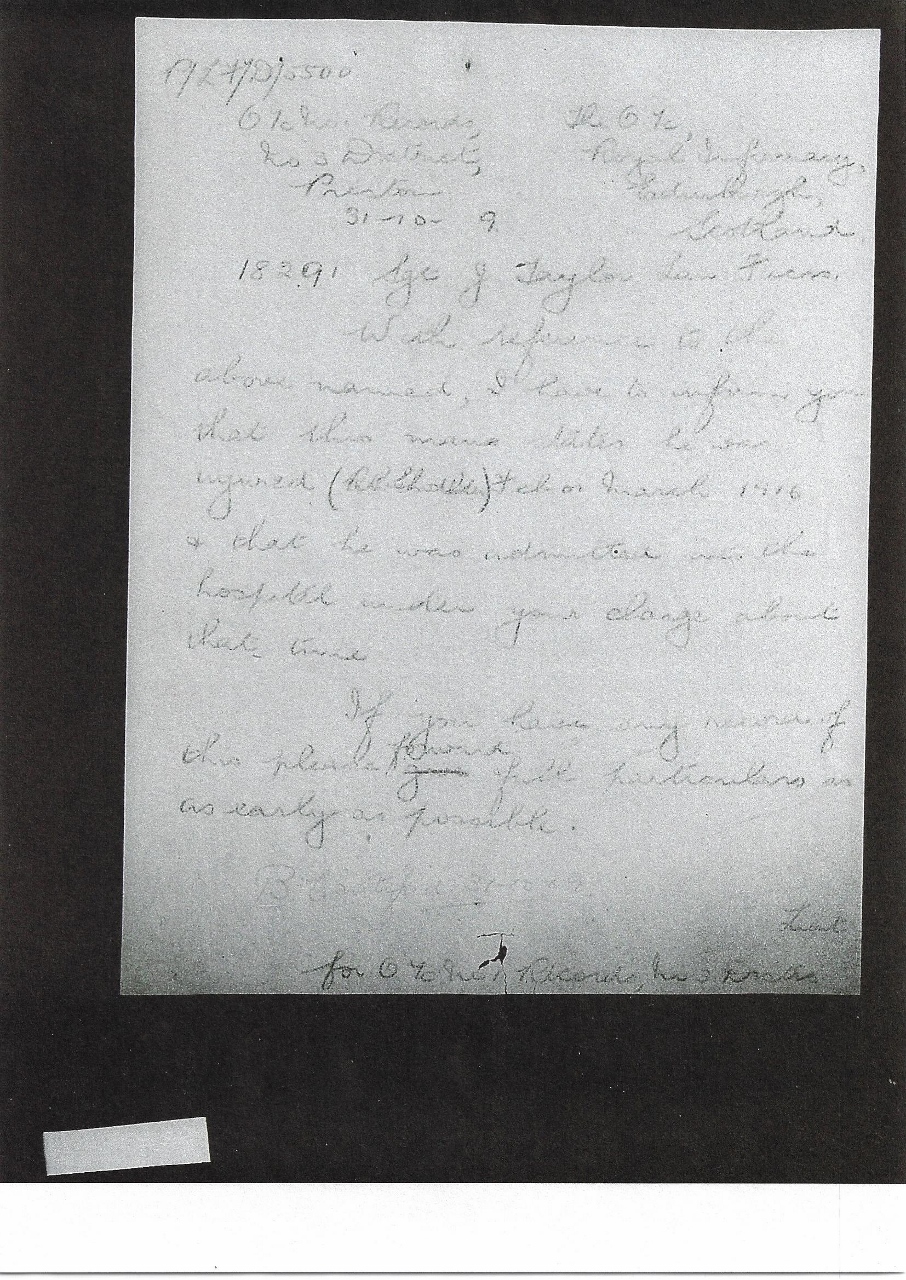 O i/c No. 1 Records,
The O i/c,
No 3 District,
Royal Infirmary,
Preston
Edinburgh,
31-10- 9
Scotland.
18291 Sgt J Taylor Lan Fus.
With reference to the
above named, I have to inform you
that this man states he was
injured ( ) Feb or March 1916
& that he was admitted in the
hospital under your charge about
that time
If you have any record of
this please forward full particulars as
as early as possible.
Lieut
for O i/c No 1 Records, No 3